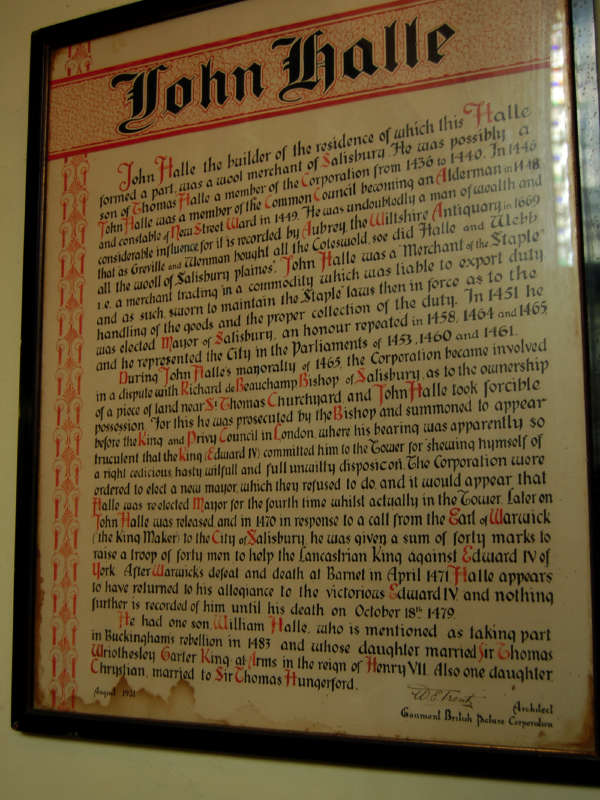 John Halle
John Halle the builder of the residence of which this Halle
formed a part, was a wool merchant of Salisbury. He was possibly a
son of Thomas Halle a member of the Corporation from 1436 to 1440. In 1446
John Halle was a member of the Common Council becoming an Alderman in 1448
and constable of New Street Ward in 1449. He was undoubtedly a man of wealth and
considerable influence for it is recorded by Aubrey, the Wiltshire Antiquary in 1669
that as Greville and Wenman bought all the Coteswold, soe did Halle and Webb
all the wooll of Salisbury plaines". John Halle was a "Merchant of the Staple"
i.e. a merchant trading in a commodity which was liable to export duty
and as such, sworn to maintain the "Staple" laws then in force as to the
handling of the goods and the proper collection of the duty. In 1451 he
was elected Mayor of Salisbury, an honour repeated in 1458, 1464 and 1465
and he represented the City in the Parliaments of 1453, 1460 and 1461.
During John Halle's mayoralty of 1465, the Corporation became involved
in a dispute with Richard de Beauchamp, Bishop of Salisbury, as to the ownership
of a piece of land near St. Thomas Churchyard and John Halle took forcible
possession. For this he was prosecuted by the Bishop and summoned to appear
before the King and Privy Council in London, where his bearing was apparently so
truculent that the King (Edward IV) committed him to the Tower for "shewing hymself of
a right cedicious hasty wilfull and full unwitty disposicon. The Corporation were
ordered to elect a new mayor, which they refused to do, and it would appear that
Halle was re-elected Mayor for the fourth time whilst actually in the Tower. Later on
John Halle was released and in 1470 in response to a call from the Earl of Warwick
(the King Maker) to the City of Salisbury, he was given a sum of forty marks to
raise a troop of forty men to help the Lancastrian King against Edward IV of
York. After Warwick's defeat and death at Barnet in April 1471 Halle appears
to have returned to his allegiance to the victorious Edward IV. and nothing
further is recorded of him until his death on October 18th 1479.
He had one son, William Halle, who is mentioned as taking part
in Buckinghams rebellion in 1483 and whose daughter married Sir Thomas
Wriothesley Garter King at Arms in the reign of Henry VII. Also one daughter
Chrystian, married to Sir Thomas Hungerford.
August 1931
W.E. Trent
Architect
Gaumont British Picture Corporation